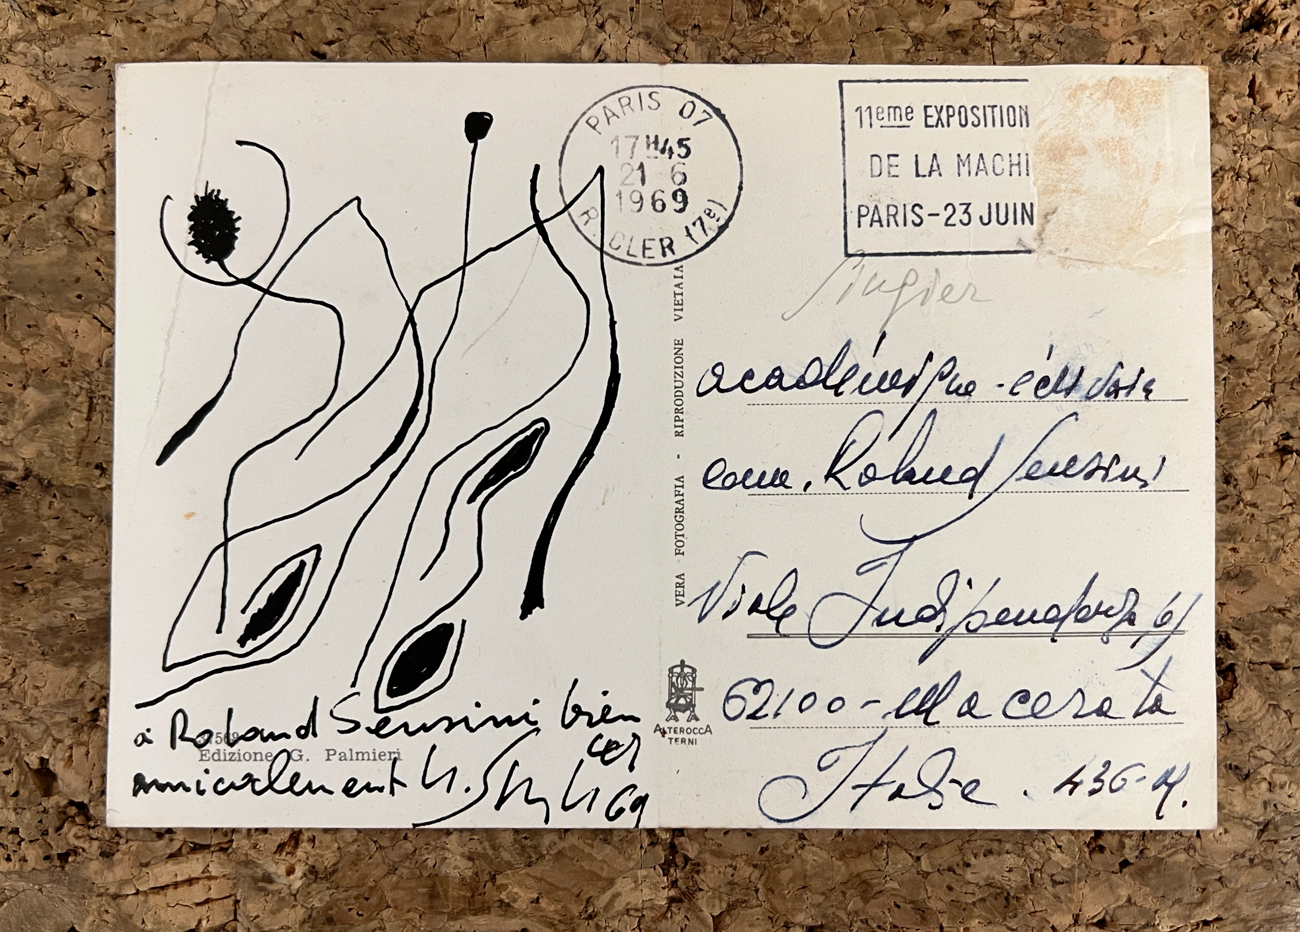 PARIS 07
17H45
21 6
1969
R. CLER (7e)
11eme EXPOSITION
DE LA MACHI
PARIS-23 JUIN
académique
com. Roland Sensini
Viale Indipendenza
62100-Macerata
Italie. 436-M.
VERA FOTOGRAFIA - RIPRODUZIONE VIETATA
ALTEROCCA
TERNI
à Roland Sensini bien
Edizione G. Palmieri
amicalement
69